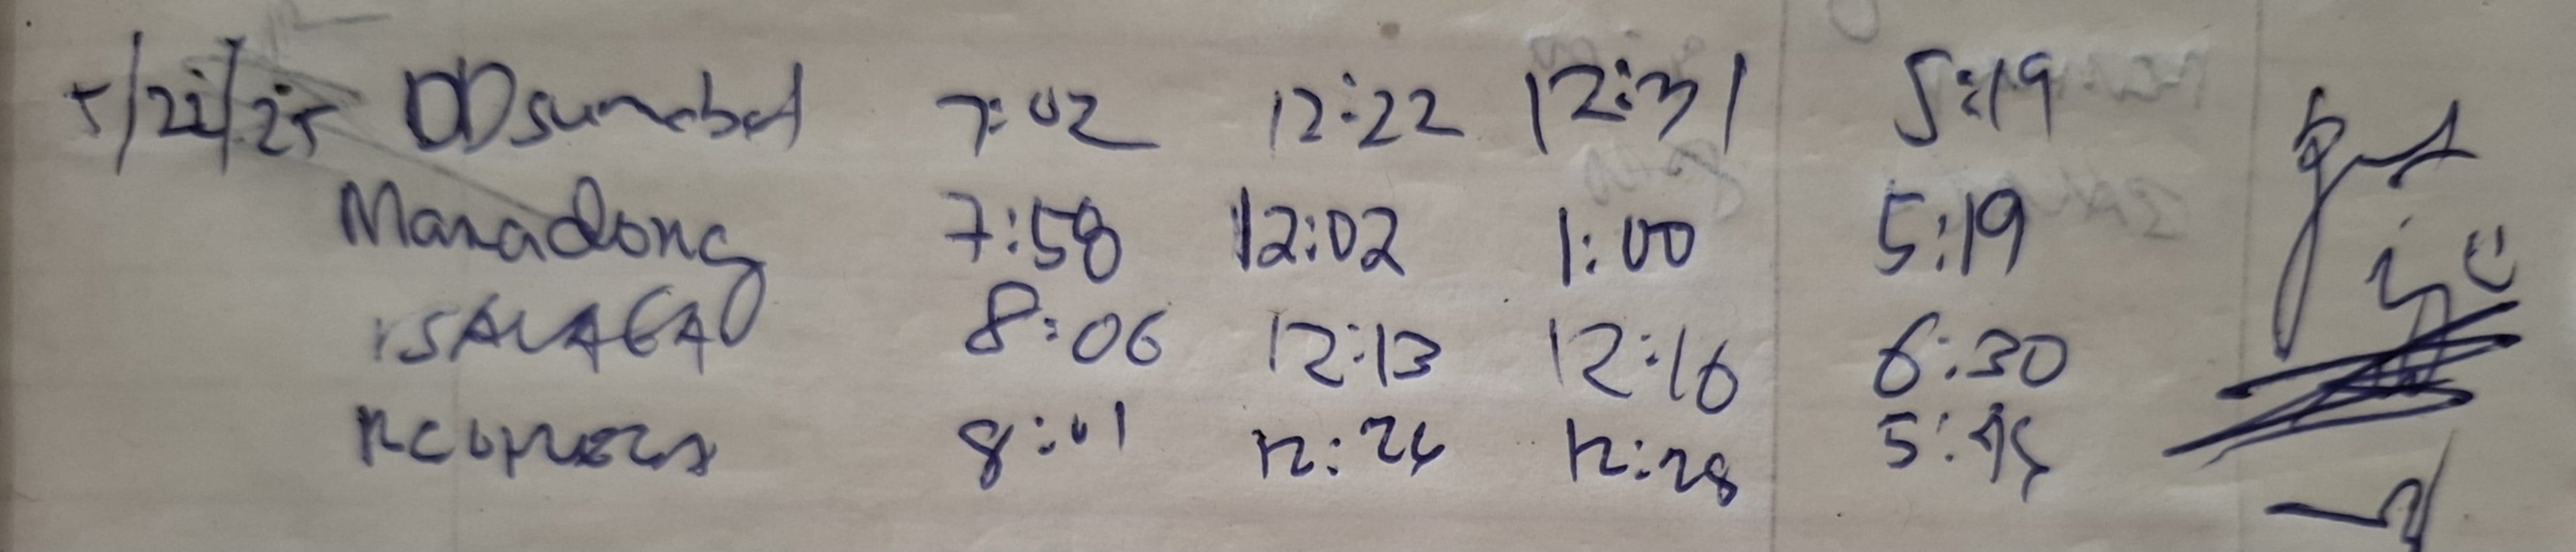 5/22/25 DDsumabal 7:02 12:22 12:31 5:19
Manadong 7:58 12:02 1:00 5:19
8:06 12:13 12:16 6:30
8:01 12:26 12:28 5:45